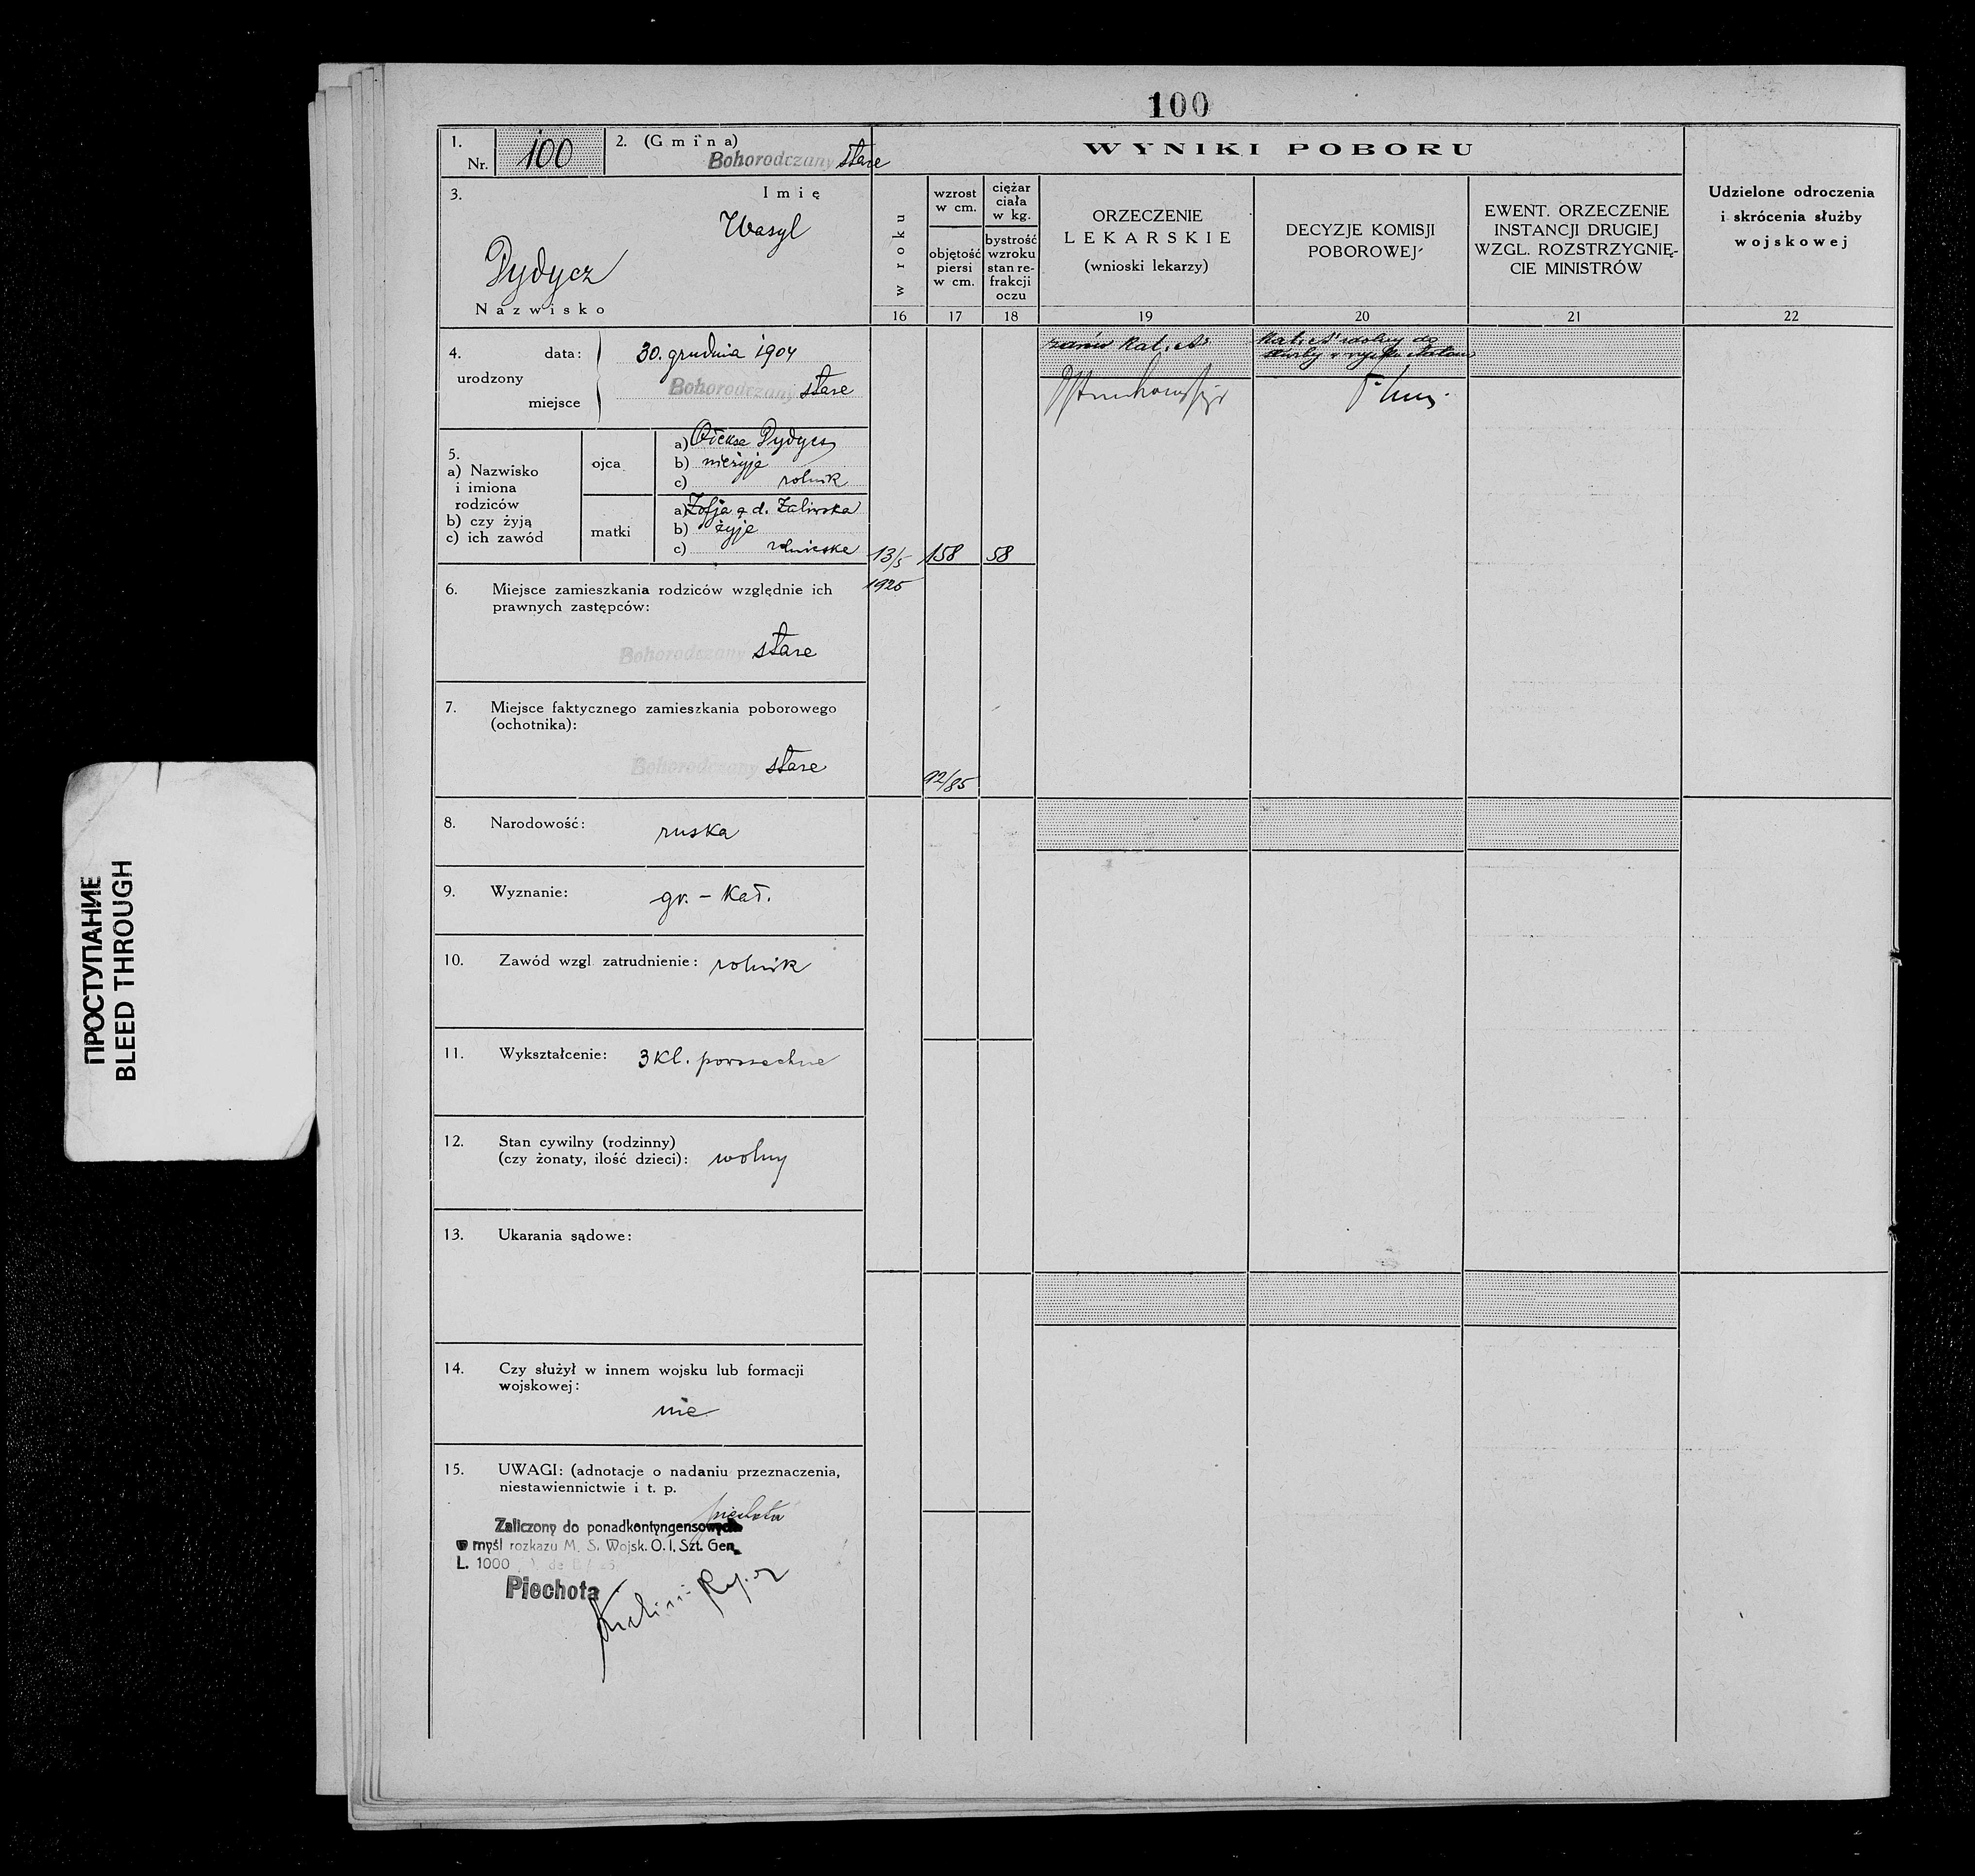 100
1.
Nr. 100
2. (Gmina)
Bohorodczany stare
WYNIKI POBORU
3.
Imię
Wasyl
Dydycz
Nazwisko
w roku
wzrost
w cm.
objętość
piersi
w cm.
ciężar
ciała
w kg.
bystrość
wzroku
stan re-
frakcji
oczu
ORZECZENIE
LEKARSKIE
(wnioski lekarzy)
DECYZJE KOMISJI
POBOROWEJ
EWENT. ORZECZENIE
INSTANCJI DRUGIEJ
WZGL. ROZSTRZYGNIĘ-
CIE MINISTRÓW
Udzielone odroczenia
i skrócenia służby
wojskowej
16 17 18 19 20 21 22
4.
urodzony
data: 30. grudnia 1904
miejsce Bohorodczany stare
Kat. A
Kat. A zdolny do
5.
a) Nazwisko
i imiona
rodziców
b) czy żyją
c) ich zawód
ojca
a) Dydycz
b) nieżyje
c) rolnik
matki
a) Zofja z d. Zaliwska
b) żyje
c) rolniczka
13/5 158 58
1925
6. Miejsce zamieszkania rodziców względnie ich
prawnych zastępców:
Bohorodczany stare
7. Miejsce faktycznego zamieszkania poborowego
(ochotnika):
Bohorodczany stare
92/85
8. Narodowość: ruska
9. Wyznanie: gr. - kat.
10. Zawód wzgl. zatrudnienie: rolnik
11. Wykształcenie: 3 kl. powszechne
12. Stan cywilny (rodzinny)
(czy żonaty, ilość dzieci): wolny
13. Ukarania sądowe:
14. Czy służył w innem wojsku lub formacji
wojskowej:
nie
15. UWAGI: (adnotacje o nadaniu przeznaczenia,
niestawiennictwie i t. p.
piechota
Zaliczony do ponadkontyngensowych
w myśl rozkazu M. S. Wojsk. O. I. Szt. Gen.
L. 1000
Piechota
ПРОСТУПАНИЕ
BLEED THROUGH